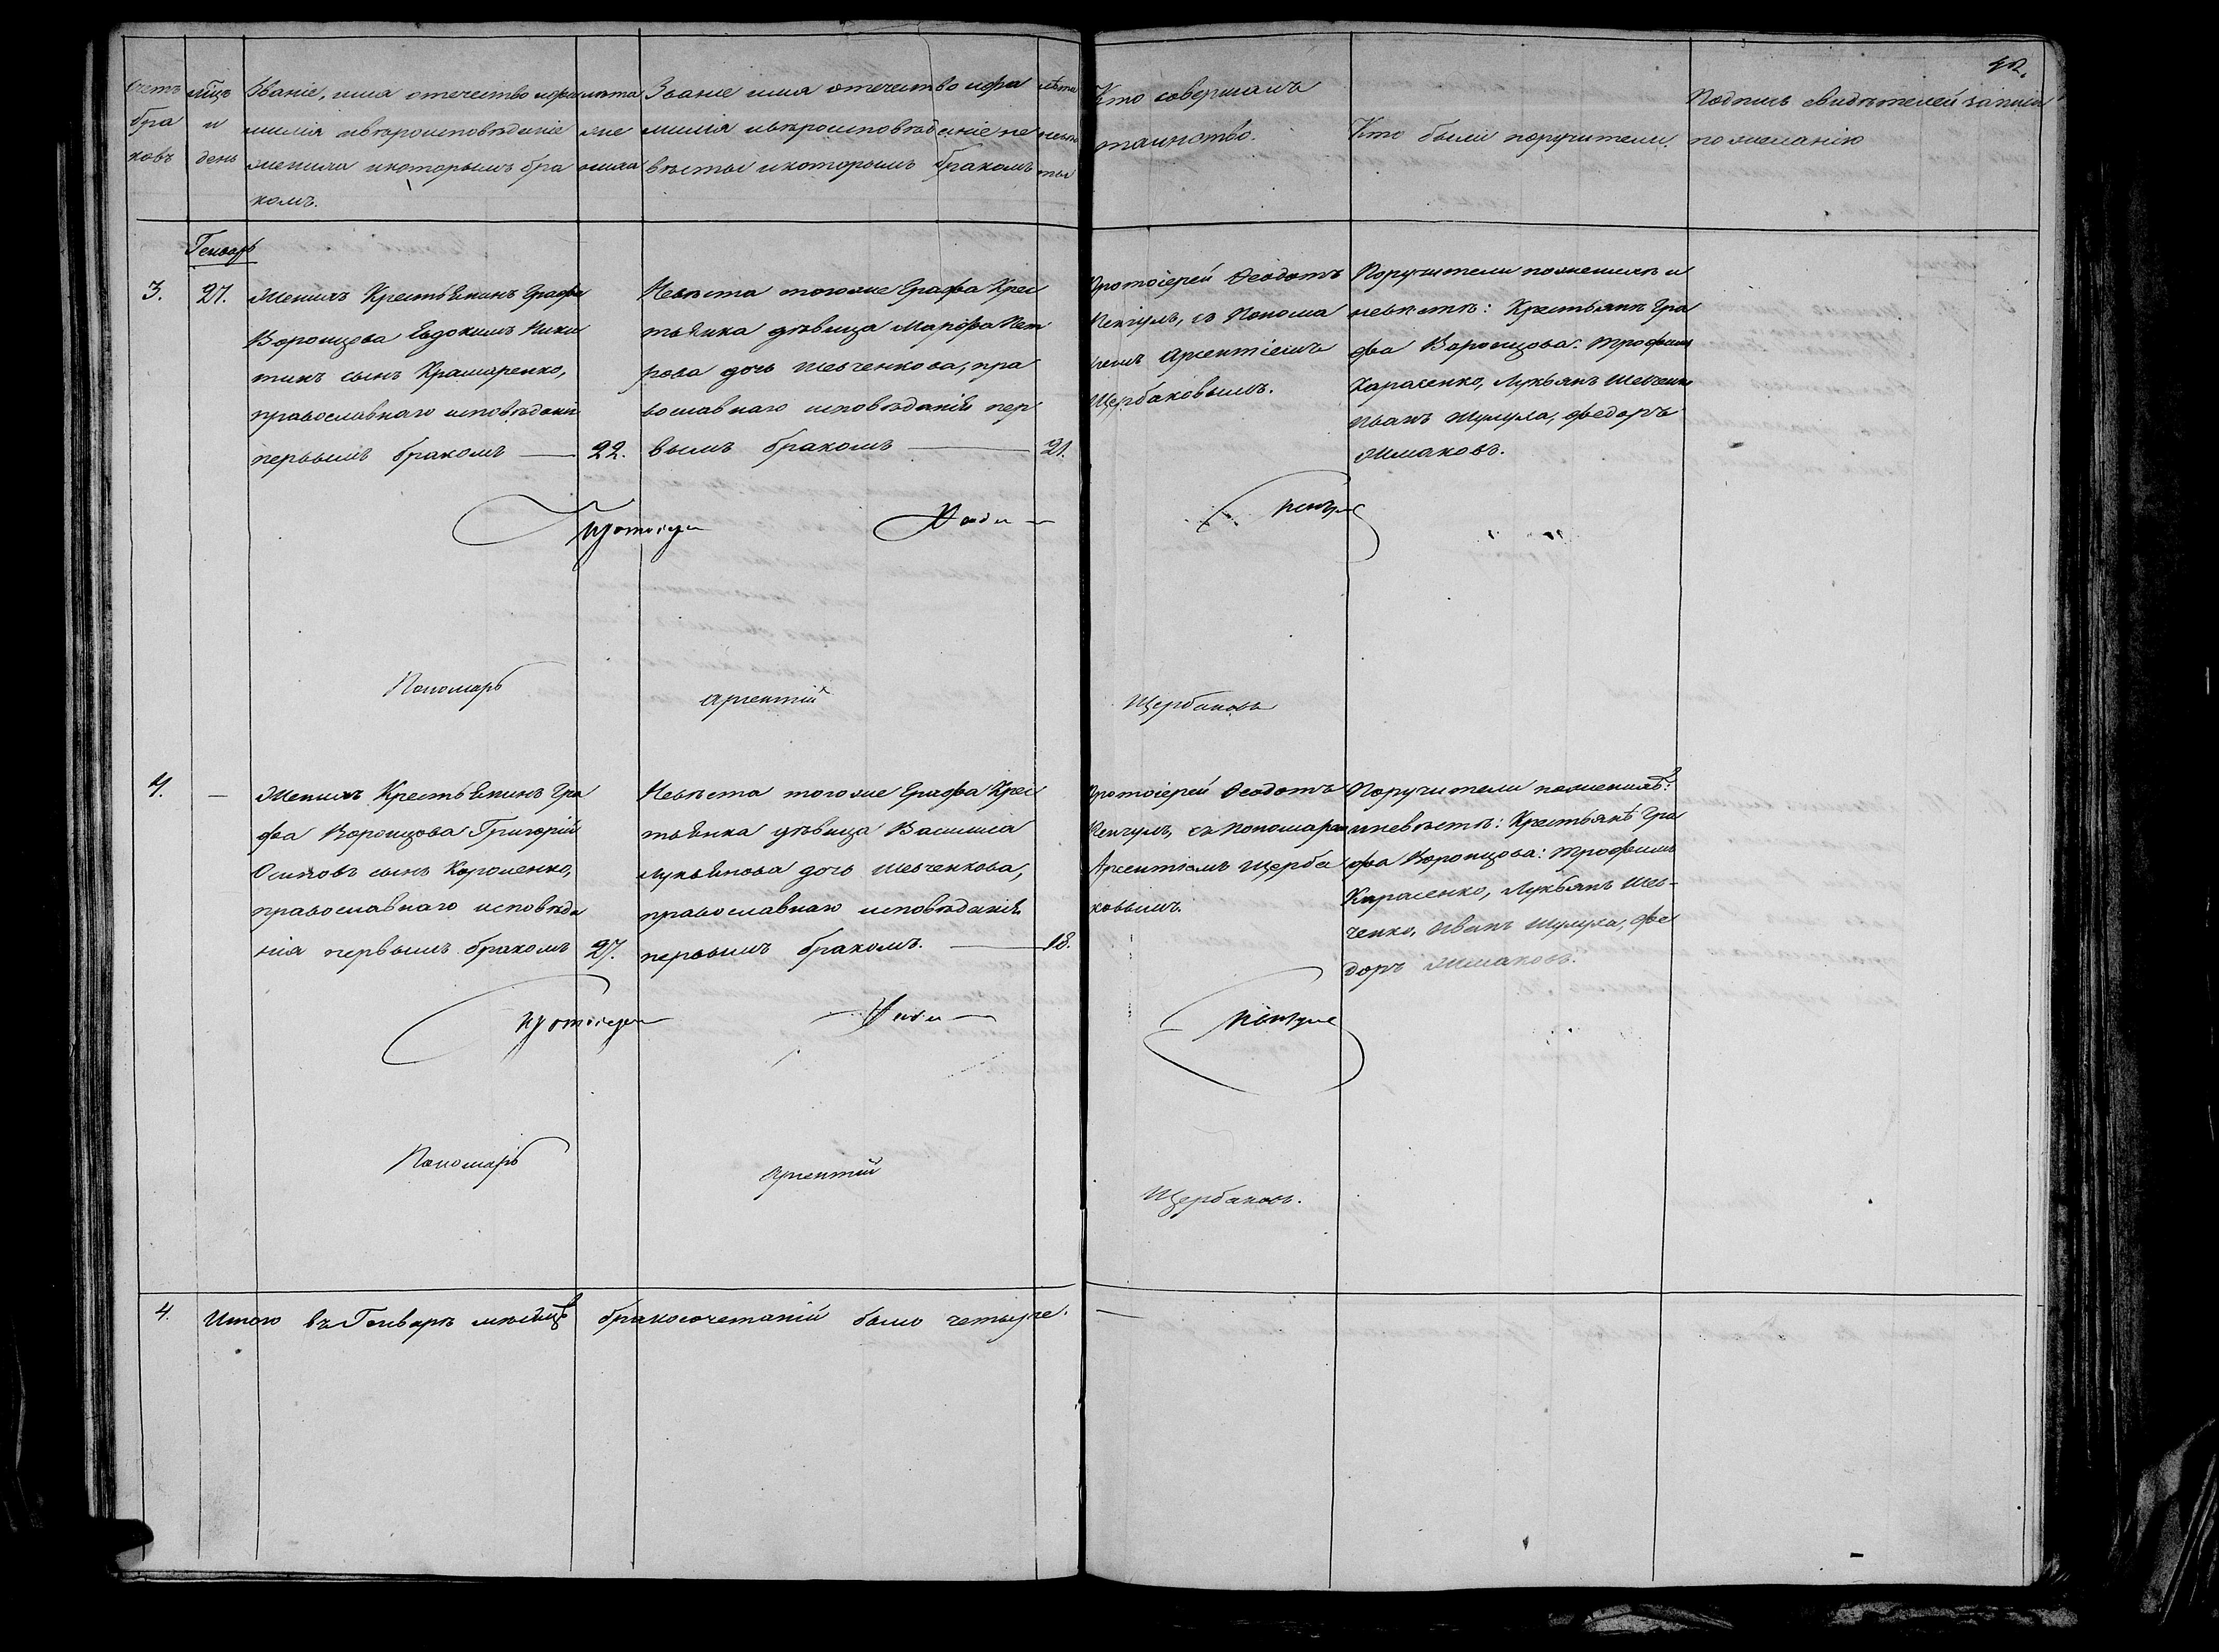 42.
Счетъ бра ковъ
мѣцъ и день
Званіе, имя отечество и фа
милія и вѣроисповѣданіе
жениха и которымъ бра
комъ.
лѣта же ниха
Званіе имя отечество и фа
милія и вѣроисповѣданіе не
вѣсты и которымъ бракомъ
лѣта невѣс ты
Кто совершалъ
таинство.
Кто были поручители.
Подпись свидѣтелей записи
по желанію
Генварь
3.
27.
Женихъ Крестьянинъ Графа
Воронцова Евдокимъ Ники
тинъ сынъ Крамаренко,
православнаго исповѣданія
первымъ бракомъ — 22.
Невѣста того же Графа Крес
тьянка дѣвица Марѳа Пет
рова дочь Шевченкова, пра
вославнаго исповѣданія пер
вымъ бракомъ — 21.
Протоіерей Ѳеодотъ
съ Понома
ремъ Арсентіемъ
Щербаковымъ.
Поручители по женихѣ и
невѣстѣ: Крестьянѣ Гра
фа Воронцова: Трофимъ
Карасенко, Лукьянъ Шевченко
Иванъ Шулула, Федоръ
Протоіерей
Пономарь Арсентій Щербаковъ
4.
—
Женихъ Крестьянинъ Гра
фа Воронцова Григорій
Осиповъ сынъ Короленко,
православнаго исповѣда
нія первымъ бракомъ 27.
Невѣста того же Графа Крес
тьянка дѣвица Василиса
Лукьянова дочь Шевченкова,
православнаго исповѣданія
первымъ бракомъ. — 18.
Протоіерей Ѳеодотъ
съ Пономаремъ
Арсентіемъ Щерба
ковымъ.
Поручители по женихѣ
и невѣстѣ: Крестьянѣ Гра
фа Воронцова: Трофимъ
Карасенко, Лукьянъ Шев-
ченко, Иванъ Шулула, Фе
доръ
Протоіерей
Пономарь Арсентій Щербаковъ.
4. Итого въ Генварѣ мѣсяцѣ бракосочетаній было четыре. —